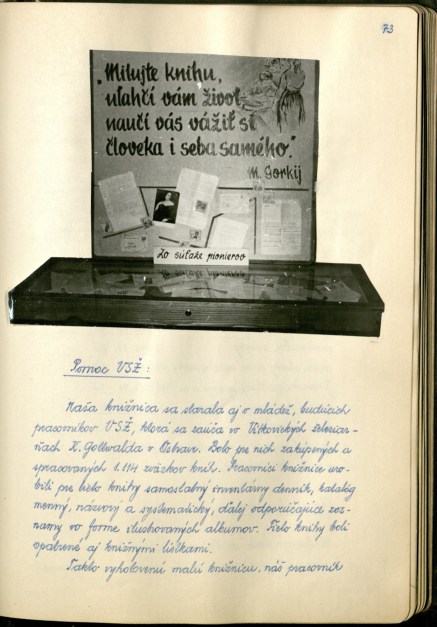 73
„Milujte knihu,
uľahčí vám život
naučí vás vážiť si
človeka i seba samého."
M. Gorkij
Zo súťaže pionierov
Pomoc VSŽ :
Naša knižnica sa starala aj o mládež, budúcich
pracovníkov VSŽ, ktorá sa zaúča vo Vítkovických železiar-
ňach K. Gottwalda v Ostrave. Bolo pre nich zakúpených a
spracovaných 1.114 zväzkov kníh. Pracovníci knižnice uro-
bili pre tieto knihy samostatný inventárny denník, katalóg
menný, názvový a systematický, ďalej odporúčajúce zoz-
namy vo forme ilustrovaných albumov. Tieto knihy boli
opatrené aj knižnými lístkami.
Takto vyhotovenú malú knižnicu, náš pracovník